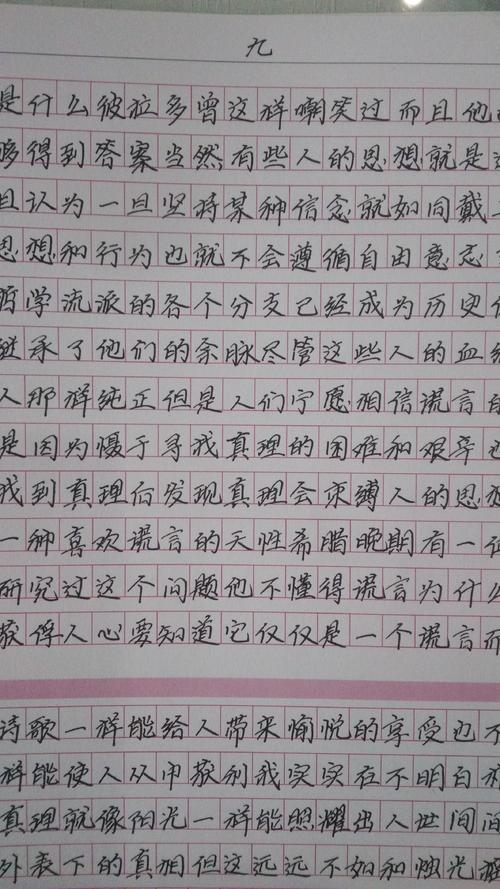 九
是什么彼拉多曾这样嘲笑过而且他
够得到答案当然有些人的思想就是
且认为一旦坚持某种信念就如同戴
思想和行为也就不会遵循自由意志
哲学流派的各个分支已经成为历史
继承了他们的余脉尽管这些人的血
人那样纯正但是人们宁愿相信谎言
是因为慑于寻找真理的困难和艰辛也
找到真理后发现真理会束缚人的思想
一种喜欢谎言的天性希腊晚期有一
研究过这个问题他不懂得谎言为什么
获俘人心要知道它仅仅是一个谎言而
诗歌一样能给人带来愉悦的享受也不
样能使人从中获利我实实在不明白
真理就像阳光一样能照耀出人世间
外表下的真相但这远远不如和烛光